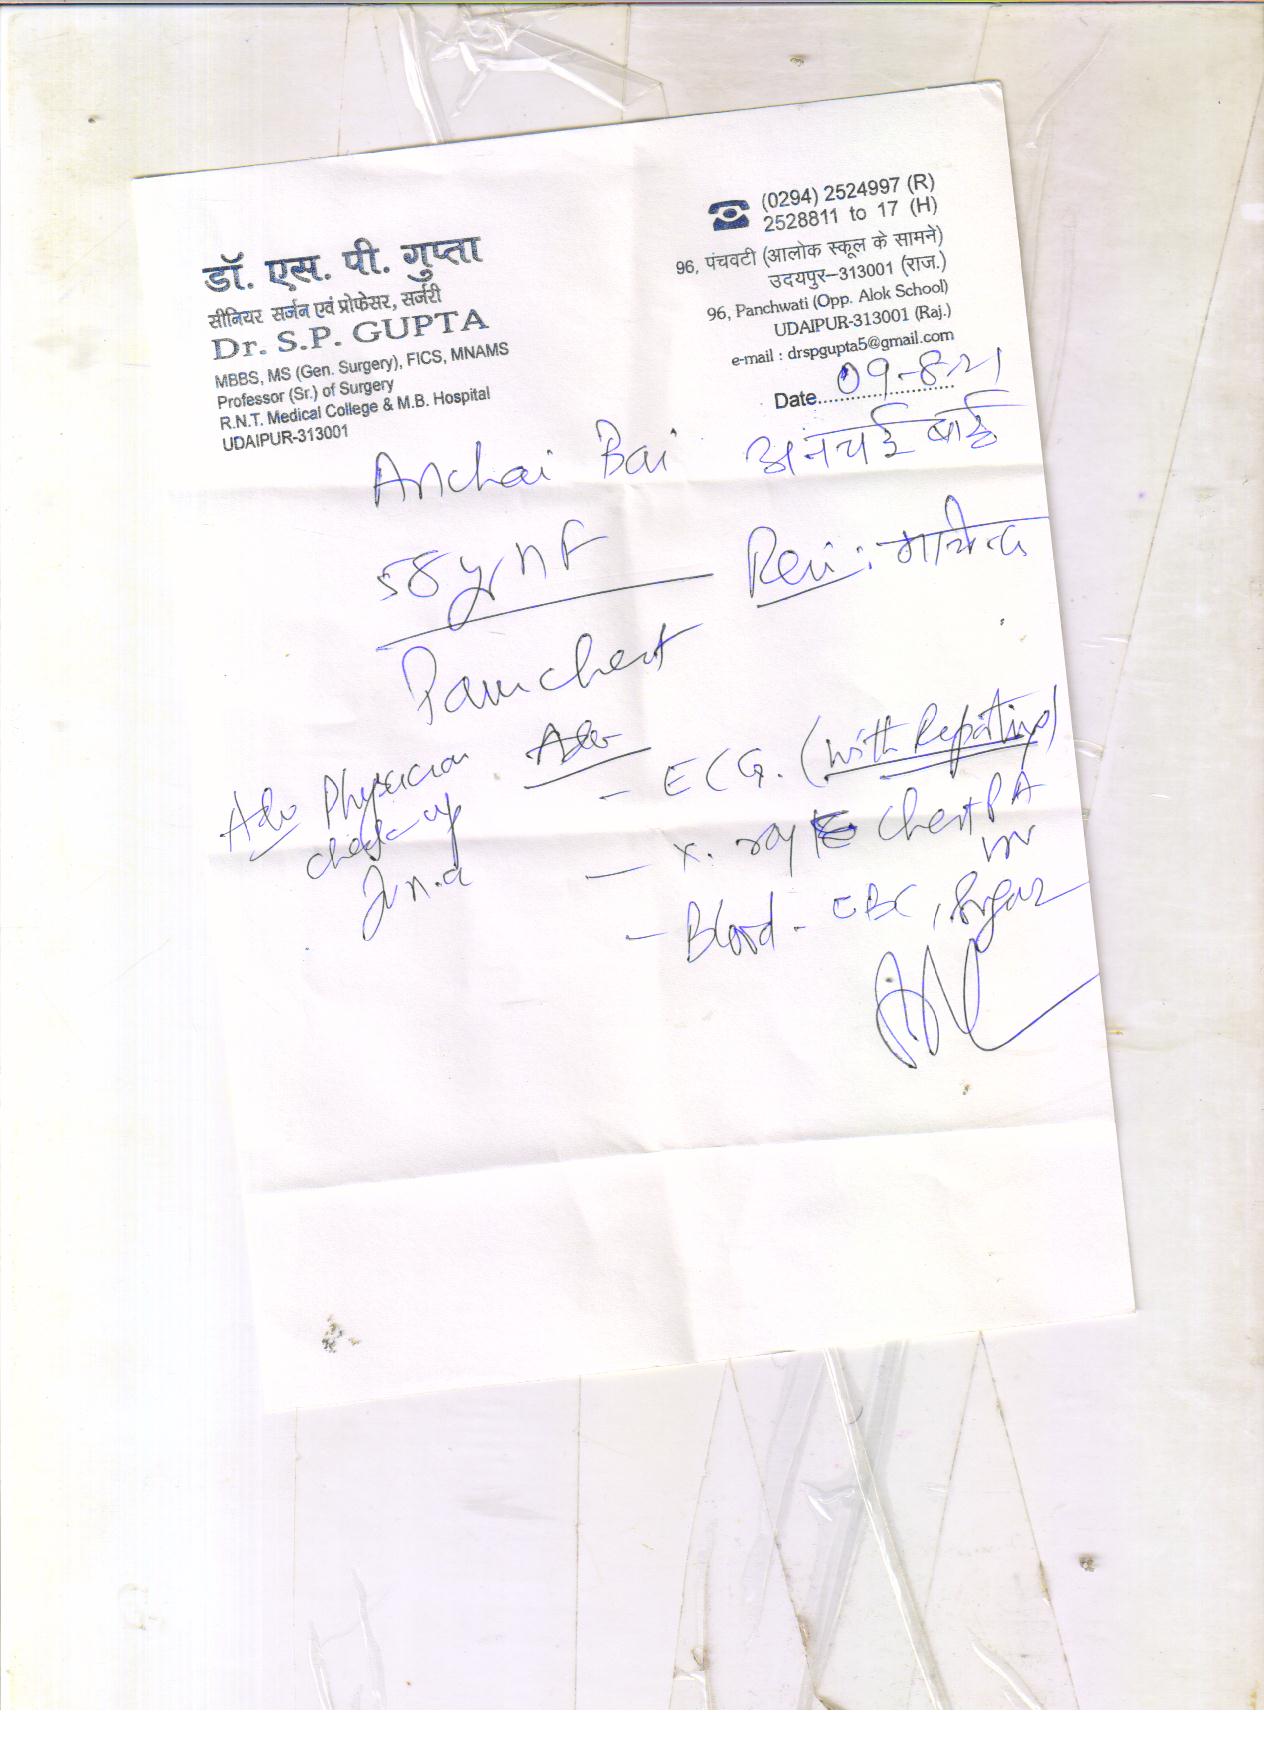 डॉ. एस. पी. गुप्ता
सीनियर सर्जन एवं प्रोफेसर, सर्जरी
Dr. S.P. GUPTA
MBBS, MS (Gen. Surgery), FICS, MNAMS
Professor (Sr.) of Surgery
R.N.T. Medical College & M.B. Hospital
UDAIPUR-313001
(0294) 2524997 (R)
2528811 to 17 (H)
96, पंचवटी (आलोक स्कूल के सामने)
उदयपुर–313001 (राज.)
96, Panchwati (Opp. Alok School)
UDAIPUR-313001 (Raj.)
e-mail : drspgupta5@gmail.com
Date 09-8-21
Anchai Bai अनचाई बाई
58 yrs F
Pain chest
Adv
- ECG. (With Reporting)
- X. ray Chest PA
- Blood - CBC, Sugar
Adv Physician
check-up